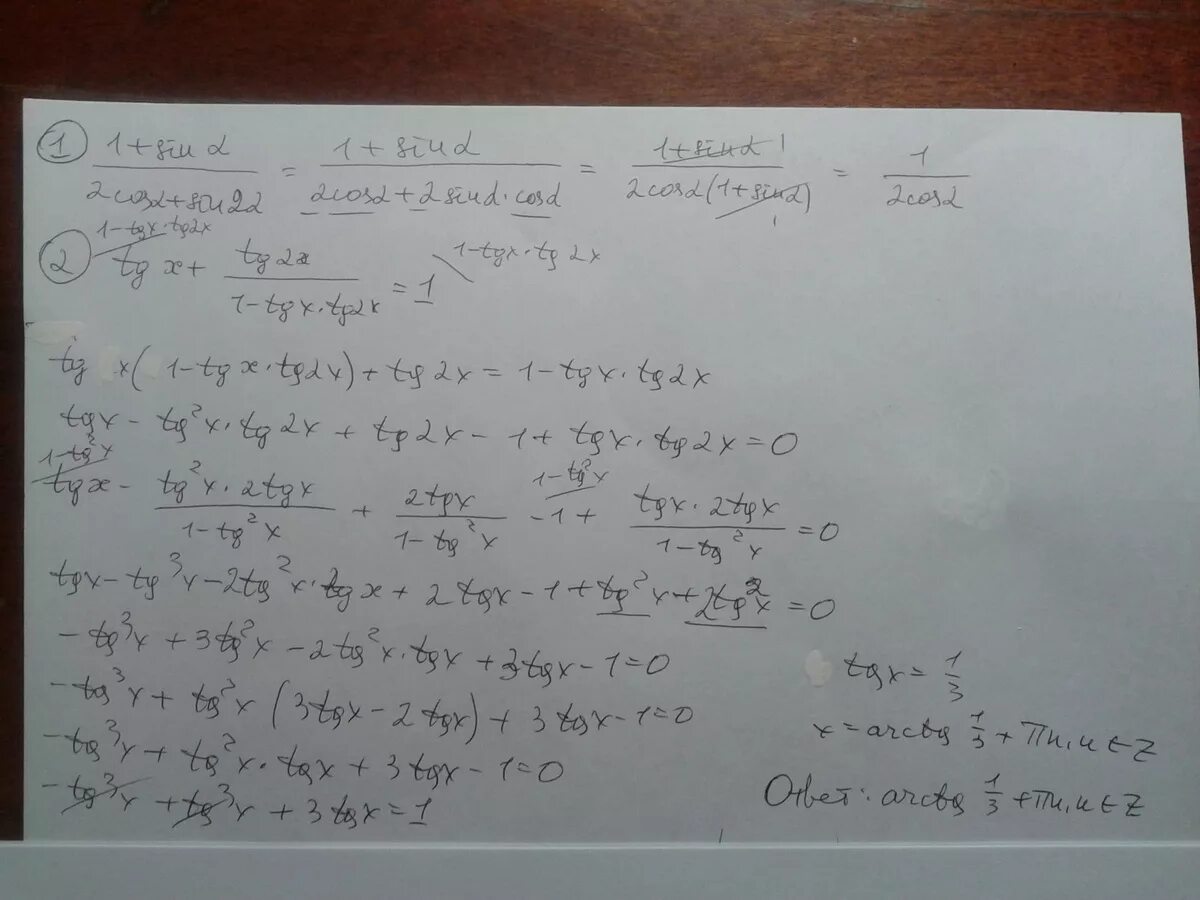 ① (1+sinα)/(2cosα+sin2α) = (1+sinα)/(2cosα+2sinα·cosα) = (1+sinα)¹/(2cosα(1+sinα)₁) = 1/(2cosα)
1-tgx·tg2x
② tg x + (tg2x)/(1-tgx·tg2x) = 1 1-tgx·tg2x
tg x(1-tgx·tg2x)+tg2x=1-tgx·tg2x
tgx-tg²x·tg2x+tg2x-1+tgx·tg2x=0
1-tg²x 1-tg²x
tgx - (tg²x·2tgx)/(1-tg²x) + (2tgx)/(1-tg²x) -1+ (tgx·2tgx)/(1-tg²x) =0
tgx-tg³x-2tg²x·tgx+2tgx-1+tg²x+2tg²x=0
-tg³x+3tg²x-2tg²x·tgx+3tgx-1=0
-tg³x+tg²x(3tgx-2tgx)+3tgx-1=0
-tg³x+tg²x·tgx+3tgx-1=0
-tg³x+tg³x+3tgx=1
tgx=1/3
x=arctg 1/3+Πn, n∈Z
Ответ: arctg 1/3+Πn, n∈Z